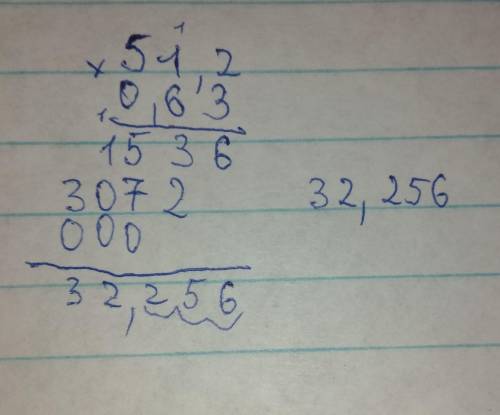 1
× 51,2
0,63
1
1536
3072
000
32,256
32,256